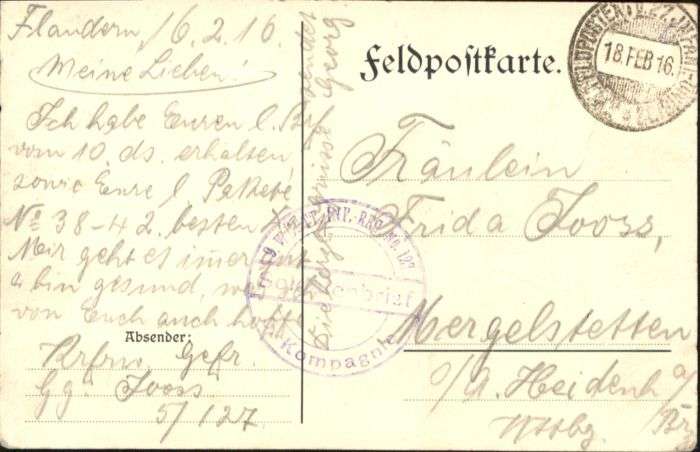 Flandern, 16.2.16.
Meine Lieben!
Ich habe Euren l. Brf
vom 10. ds. erhalten
sowie Eure l. Pakete
No 38-42. besten
Mir geht es immer gut
& bin gesund, was
von Euch auch hoffe
Herzl. Grüsse sendet
Georg
Absender:
Krfrw. Gefr.
Gg. Jooss
5/127
Feldpostkarte.
18 FEB 16.
INF. REG. No. 127
Soldatenbrief
Kompagnie
Fräulein
Frida Jooss,
Mergelstetten
O/A. Heidenh. a/
Brz
Wttbg.